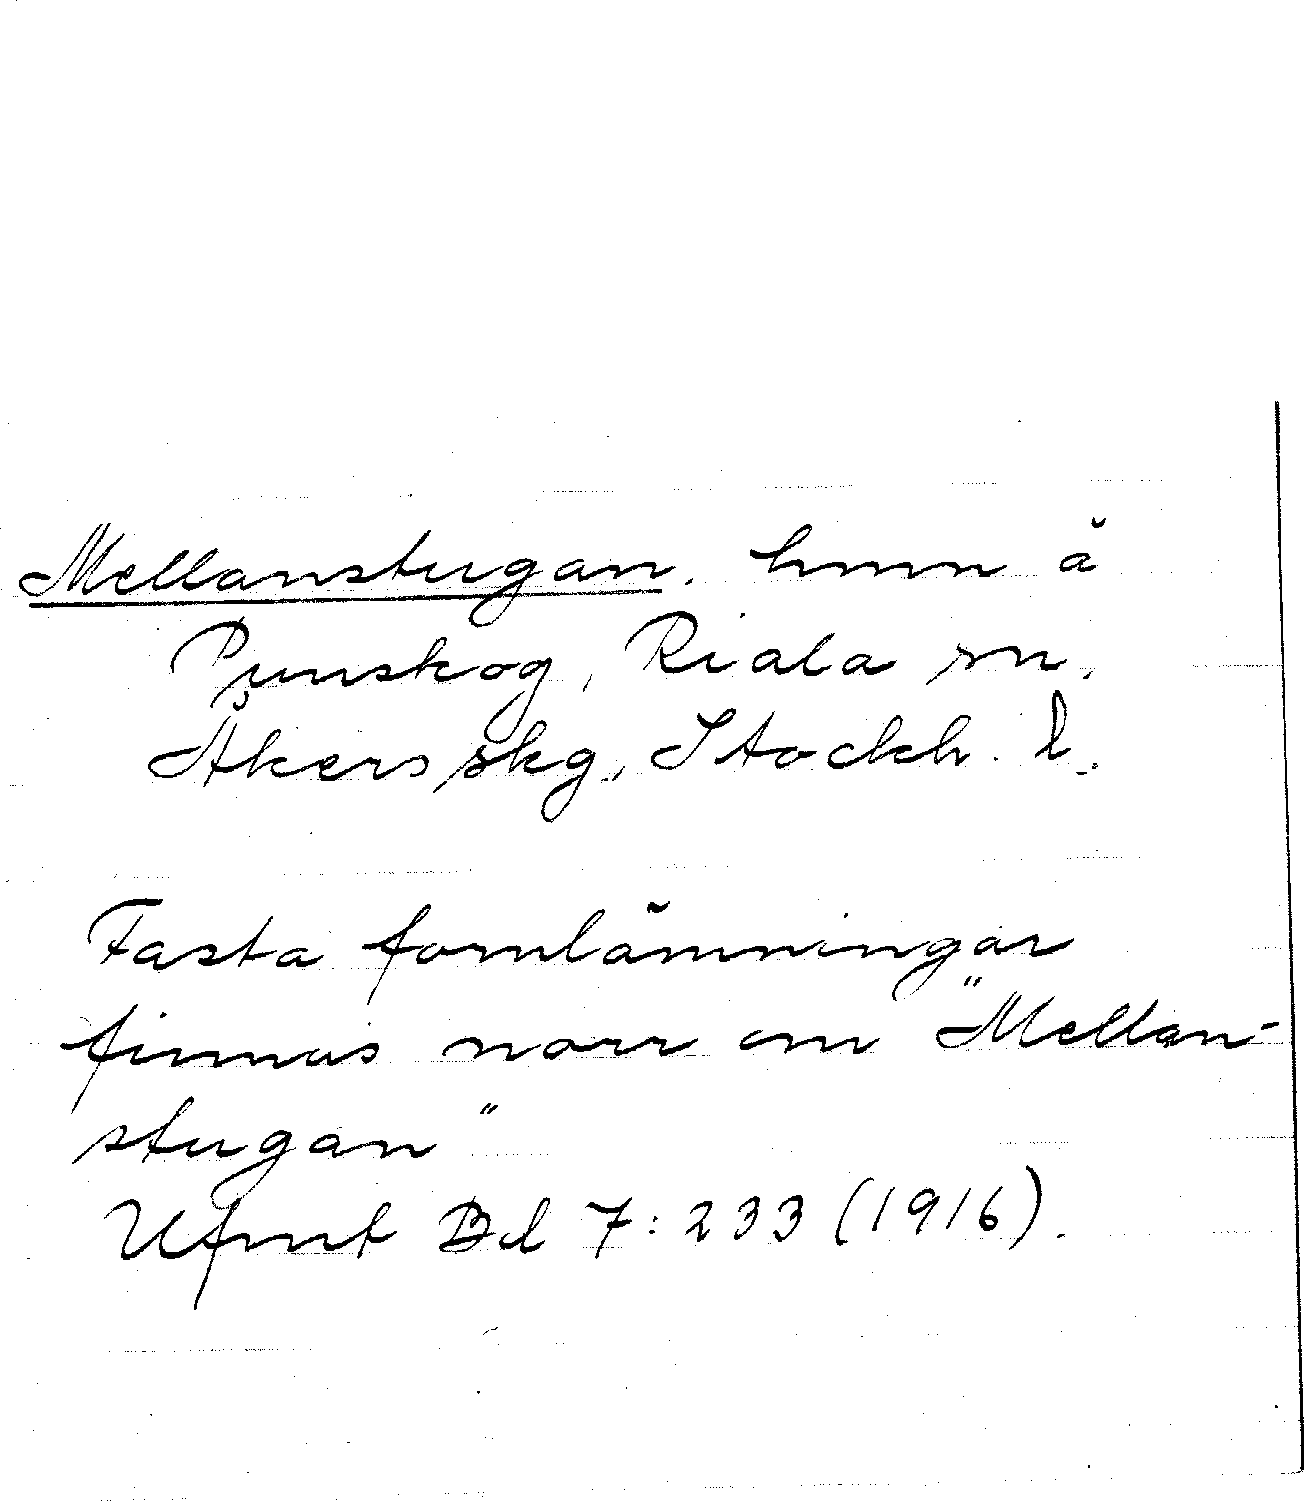 Mellanstugan, hmn å
Punskog, Riala sn,
Åkers skg, Stockh. l.
Fasta fornlämningar
finnas norr om "Mellan-
stugan"
Ufmt Bd 7:233 (1916).